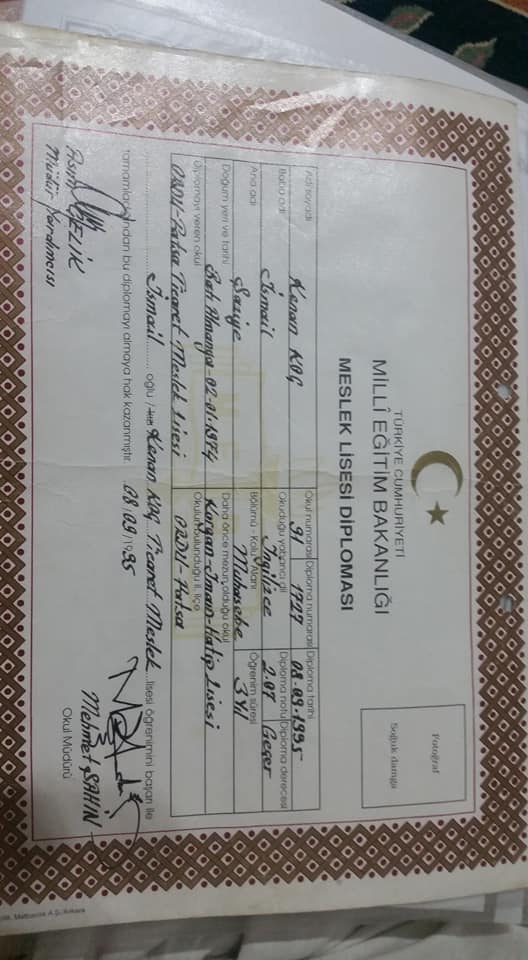 TÜRKİYE CUMHURİYETİ
MİLLÎ EĞİTİM BAKANLIĞI
MESLEK LİSESİ DİPLOMASI
Fotoğraf
Soğuk damga
Adı soyadı Kenan KOÇ Okul numarası 91 Diploma numarası 1727 Diploma tarihi 08-09-1995
Baba adı İsmail Okuduğu yabancı dil İngilizce Diploma notu 2.07 Diploma derecesi Geçer
Ana adı Şaziye Bölümü - Kolu - Alanı Muhasebe Öğrenim süresi 3 Yıl
Doğum yeri ve tarihi Batı Almanya-02-01-1974 Daha önce mezun olduğu okul Korgan İmam-Hatip Lisesi
Diplomayı veren okul ORDU-Fatsa Ticaret Meslek Lisesi Okulun bulunduğu il, ilçe ORDU-Fatsa
İsmail oğlu / kızı Kenan KOÇ Ticaret Meslek lisesi öğrenimini başarı ile
tamamladığından bu diplomayı almaya hak kazanmıştır. 08/09/1995
ÇELİK
Müdür Yardımcısı
Mehmet ŞAHİN
Okul Müdürü
Matbaacılık A.Ş./Ankara